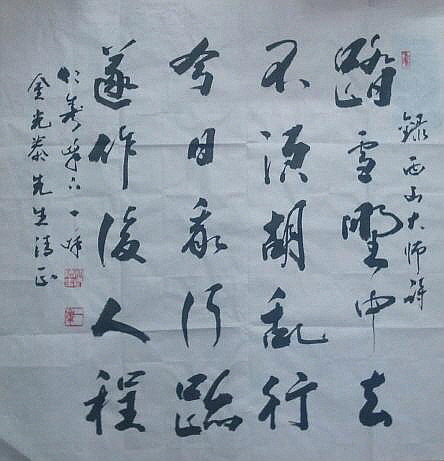 錄西山大師詩
踏雪野中去
不須胡亂行
今日我行跡
遂作後人程
仁壽峯下一
金光泰先生清正